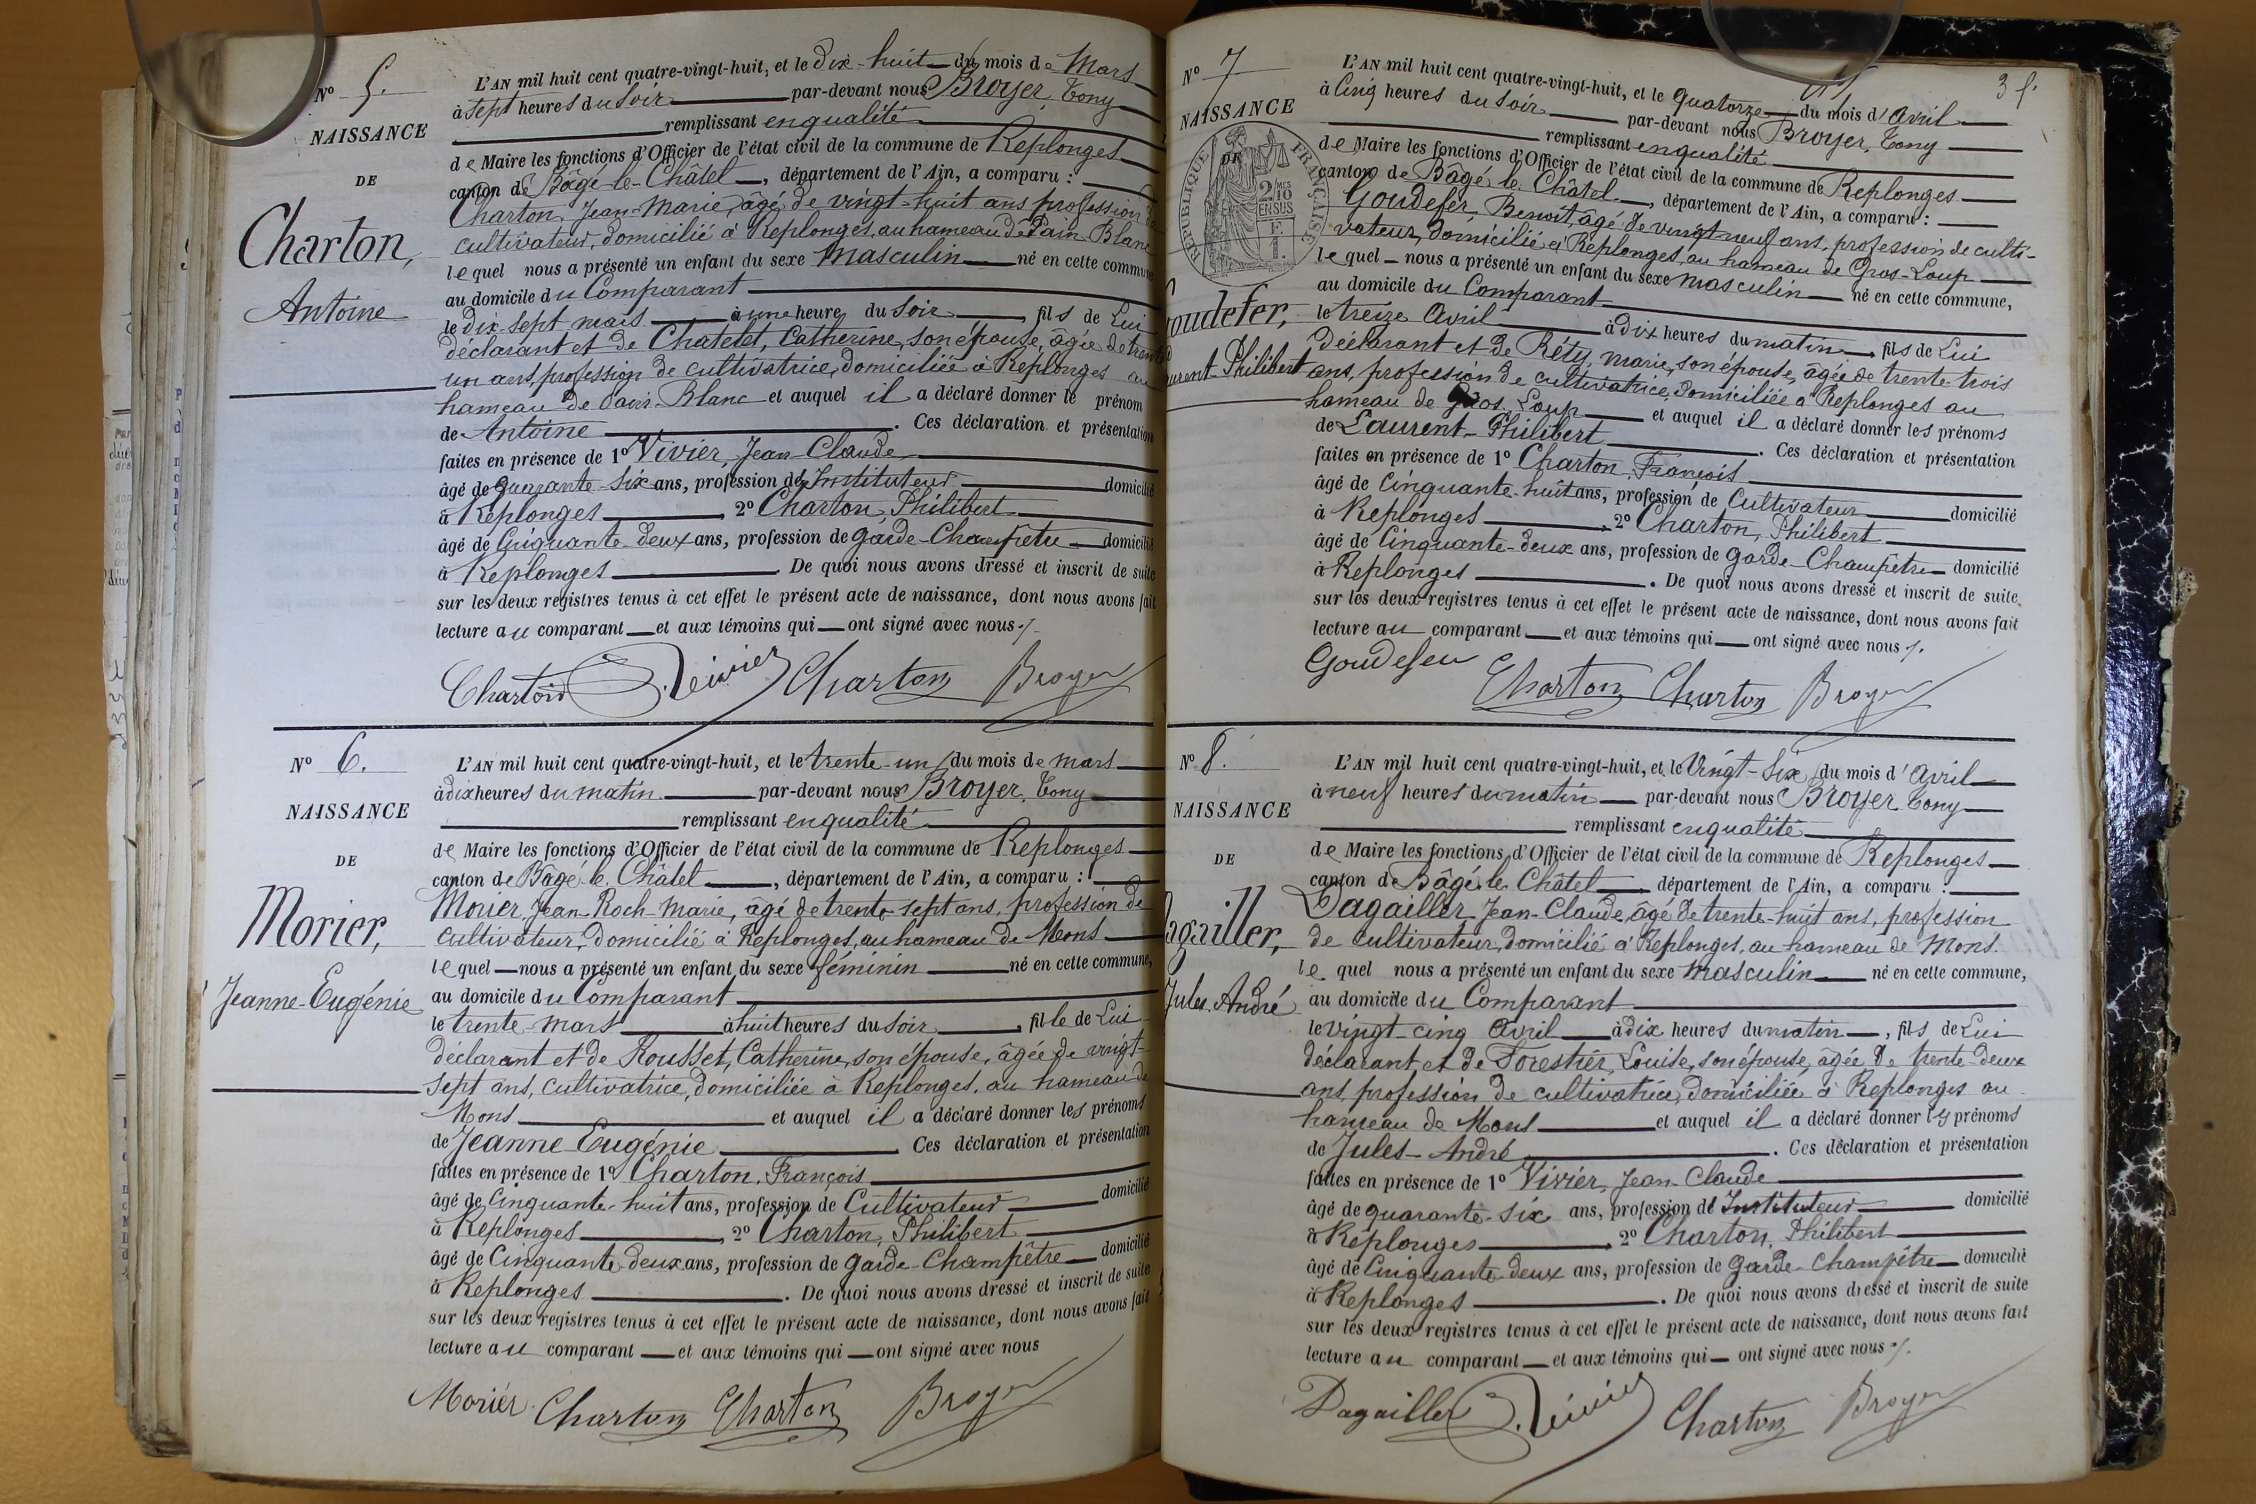 N° 5.
NAISSANCE
DE
Charton,
Antoine
L'AN mil huit cent quatre-vingt-huit, et le dix-huit du mois de Mars
à sept heures du soir par-devant nous Broyer, Tony
remplissant en qualité
de Maire les fonctions d'Officier de l'état civil de la commune de Replonges
canton de Bâgé-le-Châtel, département de l'Ain, a comparu :
Charton, Jean-Marie, âgé de vingt-huit ans profession de
cultivateur, domicilié à Replonges, au hameau de Pain-Blanc
lequel nous a présenté un enfant du sexe Masculin né en cette commune
au domicile du Comparant
le dix-sept mars à une heure du soir, fils de Lui
déclarant et de Chatelet, Catherine, son épouse, âgée de trente
un ans, profession de cultivatrice, domiciliée à Replonges au
hameau de Pain-Blanc et auquel il a déclaré donner le prénom
de Antoine. Ces déclaration et présentation
faites en présence de 1° Vivier, Jean-Claude
âgé de quarante-six ans, profession d'Instituteur domicilié
à Replonges, 2° Charton, Philibert
âgé de Cinquante-deux ans, profession de garde-Champêtre domicilié
à Replonges. De quoi nous avons dressé et inscrit de suite
sur les deux registres tenus à cet effet le présent acte de naissance, dont nous avons fait
lecture au comparant et aux témoins qui ont signé avec nous./.
Charton J. Vivier Charton Broyer
N° 6.
NAISSANCE
DE
Morier,
Jeanne-Eugénie
L'AN mil huit cent quatre-vingt-huit, et le trente-un du mois de mars
à dix heures du matin par-devant nous Broyer, Tony
remplissant en qualité
de Maire les fonctions d'Officier de l'état civil de la commune de Replonges
canton de Bâgé-le-Châtel, département de l'Ain, a comparu :
Morier, Jean-Roch-Marie, âgé de trente-sept ans, profession de
cultivateur, domicilié à Replonges, au hameau de Mons
lequel nous a présenté un enfant du sexe féminin né en cette commune,
au domicile du Comparant
le trente-mars à huit heures du soir, fille de Lui
déclarant et de Rousset, Catherine, son épouse, âgée de vingt-
sept ans, cultivatrice, domiciliée à Replonges, au hameau de
Mons et auquel il a déclaré donner les prénoms
de Jeanne-Eugénie. Ces déclaration et présentation
faites en présence de 1° Charton, François
âgé de Cinquante-huit ans, profession de Cultivateur domicilié
à Replonges, 2° Charton, Philibert
âgé de Cinquante-deux ans, profession de garde-Champêtre domicilié
à Replonges. De quoi nous avons dressé et inscrit de suite
sur les deux registres tenus à cet effet le présent acte de naissance, dont nous avons fait
lecture au comparant et aux témoins qui ont signé avec nous
Morier Charton Charton Broyer
35.
N° 7
NAISSANCE
DE
RÉPUBLIQUE FRANÇAISE
2 MES 10 EN SUS
F. 1.
oudefer,
urent-Philibert
L'AN mil huit cent quatre-vingt-huit, et le quatorze du mois d'avril
à Cinq heures du soir par-devant nous Broyer, Tony
remplissant en qualité
de Maire les fonctions d'Officier de l'état civil de la commune de Replonges
canton de Bâgé-le-Châtel, département de l'Ain, a comparu :
Goudefer, Benoît, âgé de vingt-neuf ans, profession de culti-
vateur, domicilié à Replonges, au hameau de Gros-Loup
lequel nous a présenté un enfant du sexe masculin né en cette commune,
au domicile du Comparant
le treize Avril à dix heures du matin, fils de Lui
déclarant et de Réty, Marie, son épouse, âgée de trente-trois
ans, profession de cultivatrice, domiciliée à Replonges au
hameau de Gros-Loup et auquel il a déclaré donner les prénoms
de Laurent-Philibert. Ces déclaration et présentation
faites en présence de 1° Charton, François
âgé de Cinquante-huit ans, profession de Cultivateur domicilié
à Replonges, 2° Charton, Philibert
âgé de Cinquante-deux ans, profession de garde-Champêtre domicilié
à Replonges. De quoi nous avons dressé et inscrit de suite
sur les deux registres tenus à cet effet le présent acte de naissance, dont nous avons fait
lecture au comparant et aux témoins qui ont signé avec nous./.
Goudefer Charton Charton Broyer
N° 8.
NAISSANCE
DE
agailler,
Jules-André
L'AN mil huit cent quatre-vingt-huit, et le Vingt-six du mois d'avril
à neuf heures du matin par-devant nous Broyer Tony
remplissant en qualité
de Maire les fonctions d'Officier de l'état civil de la commune de Replonges
canton de Bâgé-le-Châtel département de l'Ain, a comparu :
Dagailler, Jean-Claude, âgé de trente-huit ans, profession
de cultivateur, domicilié à Replonges, au hameau de Mons.
lequel nous a présenté un enfant du sexe masculin né en cette commune,
au domicile du Comparant
le vingt-cinq Avril à dix heures du matin, fils de Lui
déclarant, et de Forestier, Louise, son épouse, âgée de trente-deux
ans, profession de cultivatrice, domiciliée à Replonges au
hameau de Mons et auquel il a déclaré donner les prénoms
de Jules-André. Ces déclaration et présentation
faites en présence de 1° Vivier, Jean-Claude
âgé de quarante-six ans, profession d'Instituteur domicilié
à Replonges, 2° Charton, Philibert
âgé de Cinquante-deux ans, profession de garde-Champêtre domicilié
à Replonges. De quoi nous avons dressé et inscrit de suite
sur les deux registres tenus à cet effet le présent acte de naissance, dont nous avons fait
lecture au comparant et aux témoins qui ont signé avec nous./.
Dagailler J. Vivier Charton Broyer